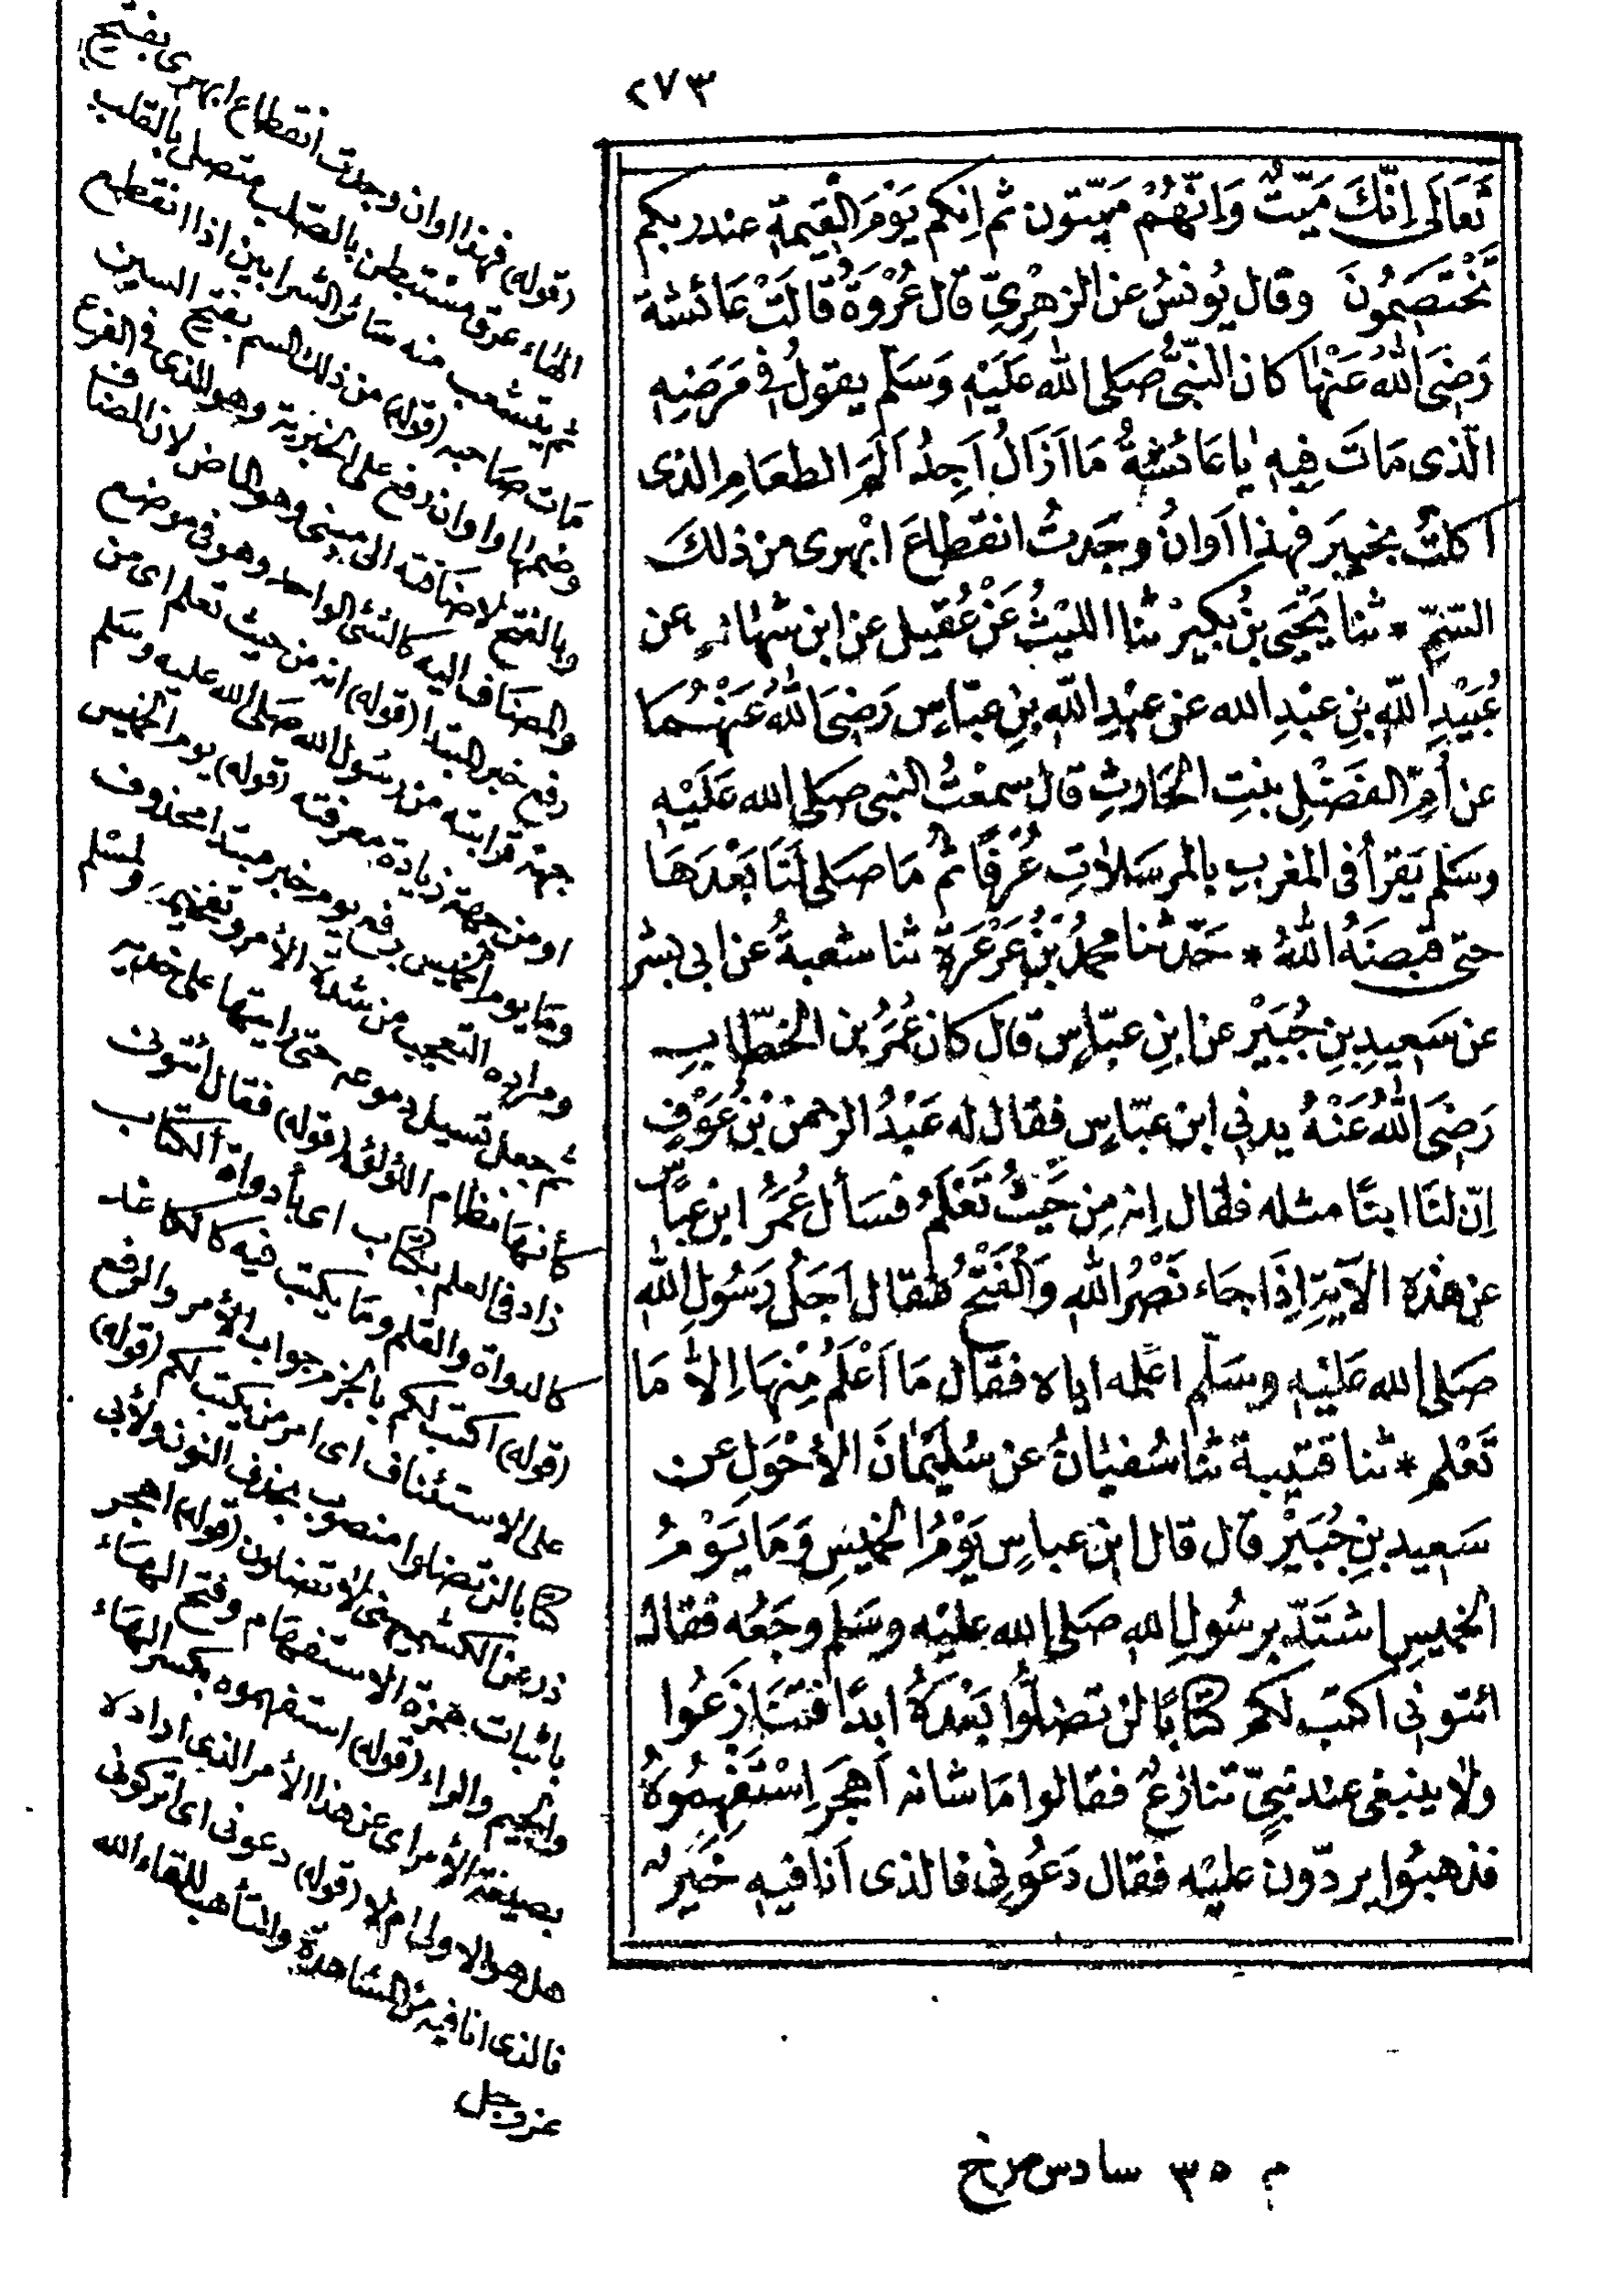 ٢٧٣
تَعَالَى اِنَّكَ مَيِّتٌ وَاِنَّهُمْ مَيِّتون ثم اِنكم يَوْمَ القِيمَةِ عند ربكم
تَخْتَصِمُونَ وقال يُونسُ عن الزهْرِيّ قال عُرْوَةُ قَالَتْ عَائشة
رَضِىَ اللهُ عَنْهَا كان النّبىُّ صَلى الله عَلَيْهِ وَسَلم يقولُ فى مَرَضِهِ
الّذى مَاتَ فِيهِ يا عَائشةُ مَا اَزَالُ اَجِدُ اَلَمَ الطعَامِ الذى
اَكلتُ بخيبَرَ فهذا اَوَانُ وجَدتُ انقطاعَ ابْهرى من ذلكَ
السّمِّ * ثنا يَحْيَى بنُ بُكيرْ ثنا الليْثُ عَنْ عُقَيل عن ابن شهاب عن
عُبَيْدِ اللهِ بنِ عَبْدِ الله عن عبْدِ اللهِ بنِ عبّاسٍ رَضِىَ اللهُ عَنْهُمَا
عن اُمِّ الفَضْلِ بنتِ الحَارثِ قال سمعْتُ النبى صَلى الله عَلَيْهِ
وسَلم يَقرأ فى المغرب بالمرسَلاتِ عُرْفًا ثم مَا صَلى لَنَا بَعْدَهَا
حتى قبضَهُ اللهُ * حَدّثنا محمدُ بْنُ عَرْعَرَةَ ثنا شعبةُ عن ابى بشر
عن سَعيدِ بنِ جُبَيْر عن ابنِ عبّاس قال كان عُمَرُ بن الخطّاب
رَضِىَ اللهُ عَنْهُ يدنى ابن عبّاسٍ فقال له عَبْدُ الرحمن بْنُ عَوْفٍ
اِنّ لنَا ابنًا مثله فقال اِنه مِن حَيْثُ تَعْلَمُ فسَأل عُمَرُ ابن عبّاس
عن هذه الآيَةِ اِذَا جاء نَصْرُ اللهِ وَالفَتْحُ فقال اَجَلُ رَسُولِ الله
صَلى الله عَليْهِ وسَلّم اعلمه اياه فقال مَا اَعْلَمُ مِنْهَا اِلاَّ مَا
تَعْلم * ثنا قتيبة ثنا سُفيَانُ عن سُليْمَانَ الأحْوَلِ عن
سَعيد بنِ جُبَيْر قال قال ابن عباسٍ يَوْمُ الخميسِ وَمَا يَوْمُ
الخميسِ اشتَدّ برسُولِ الله صَلى الله عليْه وسَلم وجَعُه فقال
ائتونى اكتب لكم كتابًا لن تضلّوا بَعْدَهُ ابدًا فتنَازَعُوا
ولا ينبغى عند نبىٍّ تنازعٌ فقالوا مَا شانه اَهَجَرَ اسْتَفْهِمُوهُ
فذهبُوا يردّون عليْه فقال دَعُونى فالذى اَنا فيه خَيرٌ
(قوله) فهذا اوان وجدت انقطاع ابهرى بفتح
الهاء عرق مستبطن بالصّلب متصل بالقلب
ثم يتشعب منه سائر الشرايين اذا انقطع
مَات صاحبه (قوله) من ذلك السم بفتح السين
وضمها واوان رفع على الخبرية وهو الذى فى الفرع
وبالفتح لاضافته الى مبنى وهو الماضى لان المضاف
والمضاف اليه كالشئ الواحد وهو فى موضع
رفع خبر المبتدا (قوله) انه من حيث تعلم اى من
جهة قرابته من رسول الله صَلى الله عليه وسَلم
او من جهة زيادة معرفته (قوله) يوم الخميس
ومَا يوم الخميس برفع يوم خبر مبتدا محذوف
ومراده التعجب من شدة الأمر وتفخيمه ولمسْلم
ثم جعل تسيل دموعه حتى رايتها على خديه
كأنها نظام اللؤلؤ (قوله) فقال ائتونى
زاد فى العلم بكتاب اى بأدواة الكتاب
كالدواة والقلم ومَا يكتب فيه كالكاغد
(قوله) اكتب لكم بالجزم جواب الأمر والرفع
على الاستئناف اى امر من يكتب لكم (قوله)
كتابا لن تضلوا منصوب بحذف النون ولأبى
ذر عن الكشميهنى لا تضلون (قوله) اهجر
باثبات همزة الاستفهام وفتح الهاء
والجيم والراء (قوله) استفهموه بكسر الهاء
بصيغة الأمر اى عن هذا الأمر الذى اراده
هل هو الاولى ام لا (قوله) دعونى اى اتركونى
فالذى انا فيه من المشاهدة والتأهب للقاء الله
عز وجل
م ٣٥ سادس من خ